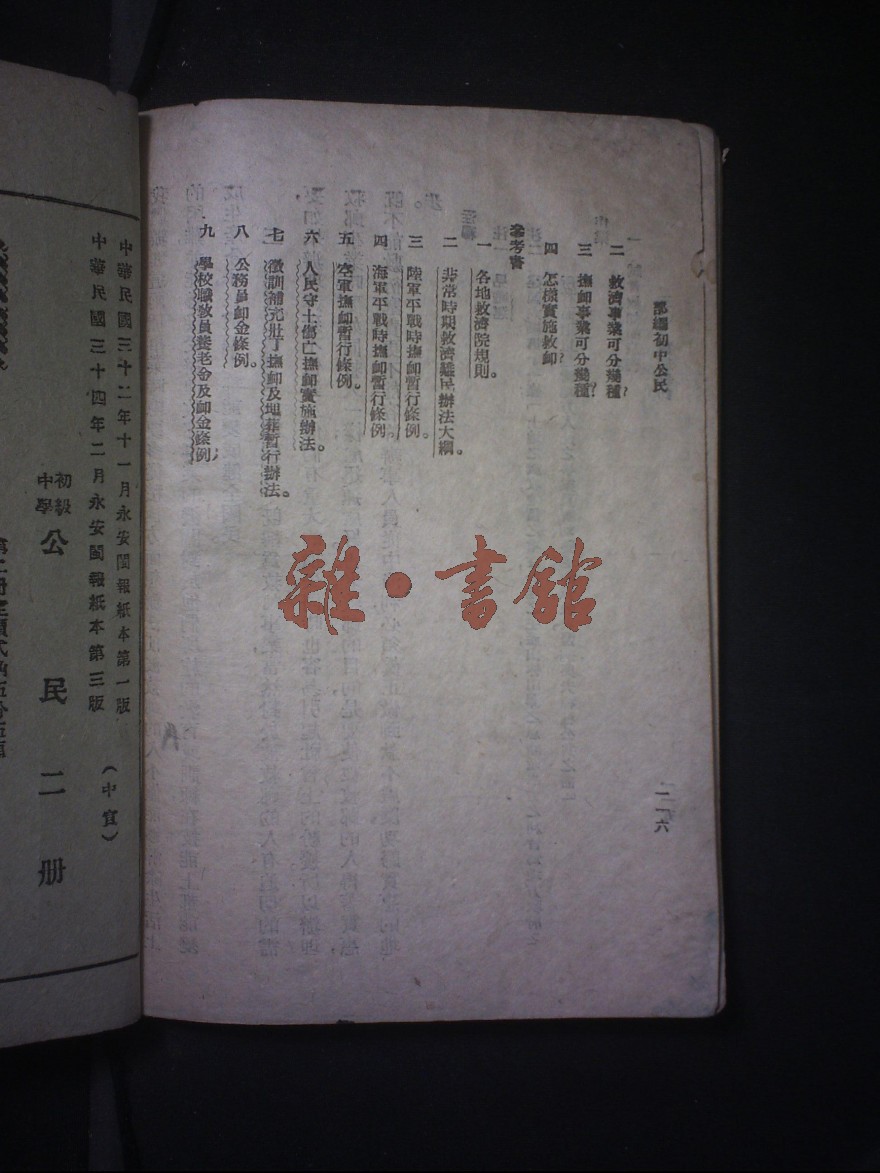 部編初中公民
一一六
二　救濟事業可分幾種?
三　撫卹事業可分幾種?
四　怎樣實施救卹?
參考書
一　各地救濟院規則。
二　非常時期救濟難民辦法大綱。
三　陸軍平戰時撫卹暫行條例。
四　海軍平戰時撫卹暫行條例
五　空軍撫卹暫行條例。
六　人民守土傷亡撫卹實施辦法。
七　徵訓補充壯丁撫卹及埋葬暫行辦法。
八　公務員卹金條例。
九　學校職教員養老金及卹金條例
中華民國三十二年十一月永安閩報紙本第一版
中華民國三十四年二月永安閩報紙本第三版
(中宜)
初級中學 公民二册
雜·書館